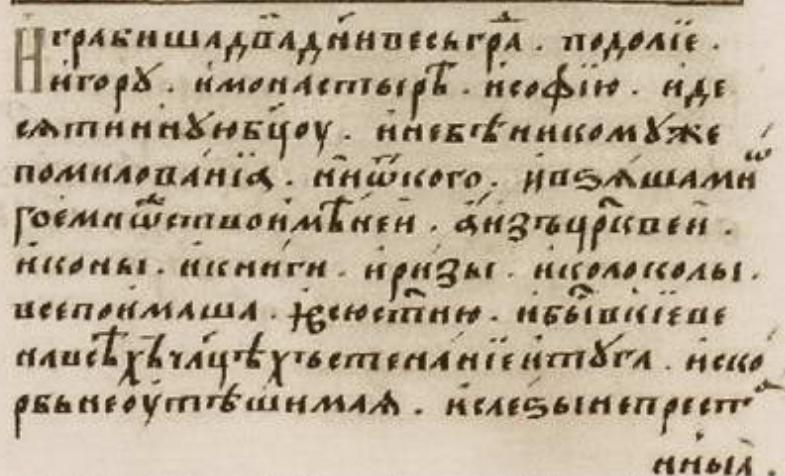 Играбишадв҃адн҃ивесьгра̑ . подолїе .
игору . имонастырѣ . исофїю . иде
сѧтиннꙋюбц҃ю . инебѣникомꙋже
помилованїѧ . ниѿкого . ивзѧшамнѡ
гоемнѡжствоимѣнеи . аизъцр҃квеи .
иконы . икниги . иризы . иколоколы .
всепоимаша . ивсюст҃ню . ибы́вкїеве
навсѣхъчл҃цѣхъстенанїеитꙋга . иско
рбьнеоутѣшимаѧ . ислезынепреста
нныѧ .